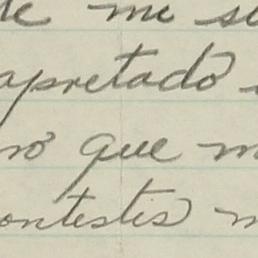 de me se
apretado
ro que m
ontestes m